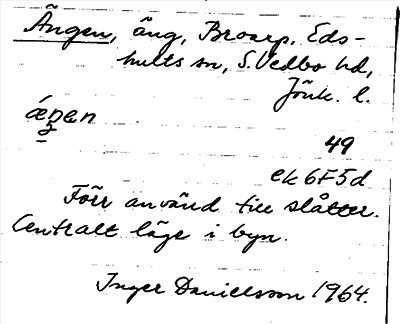 Ängen, äng, Broarp, Eds-
hults sn, S. Vedbo hd,
Jönk. l.
áŋen
5
49
ek 6F5d
Förr använd till slåtter.
Centralt läge i byn.
Inger Danielsson 1964.